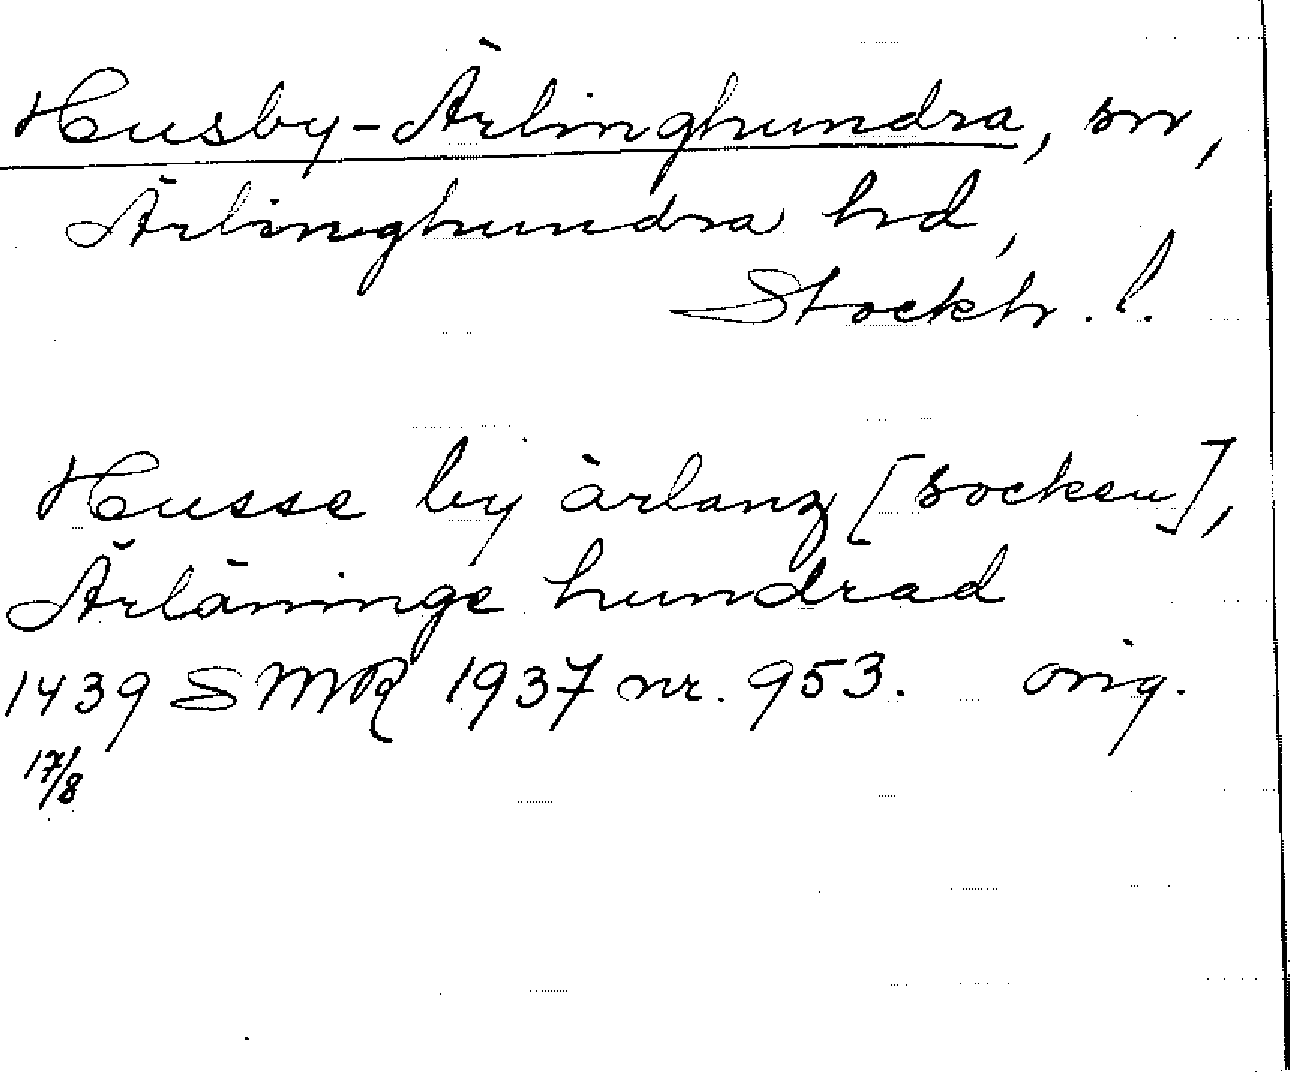 Husby-Ärlinghundra, sn,
Ärlinghundra hd,
Stockh. l.
Husse by ärlanz [socken],
Ärläninge hundrad
1439 SMR 1937 nr. 953. orig.
17/8